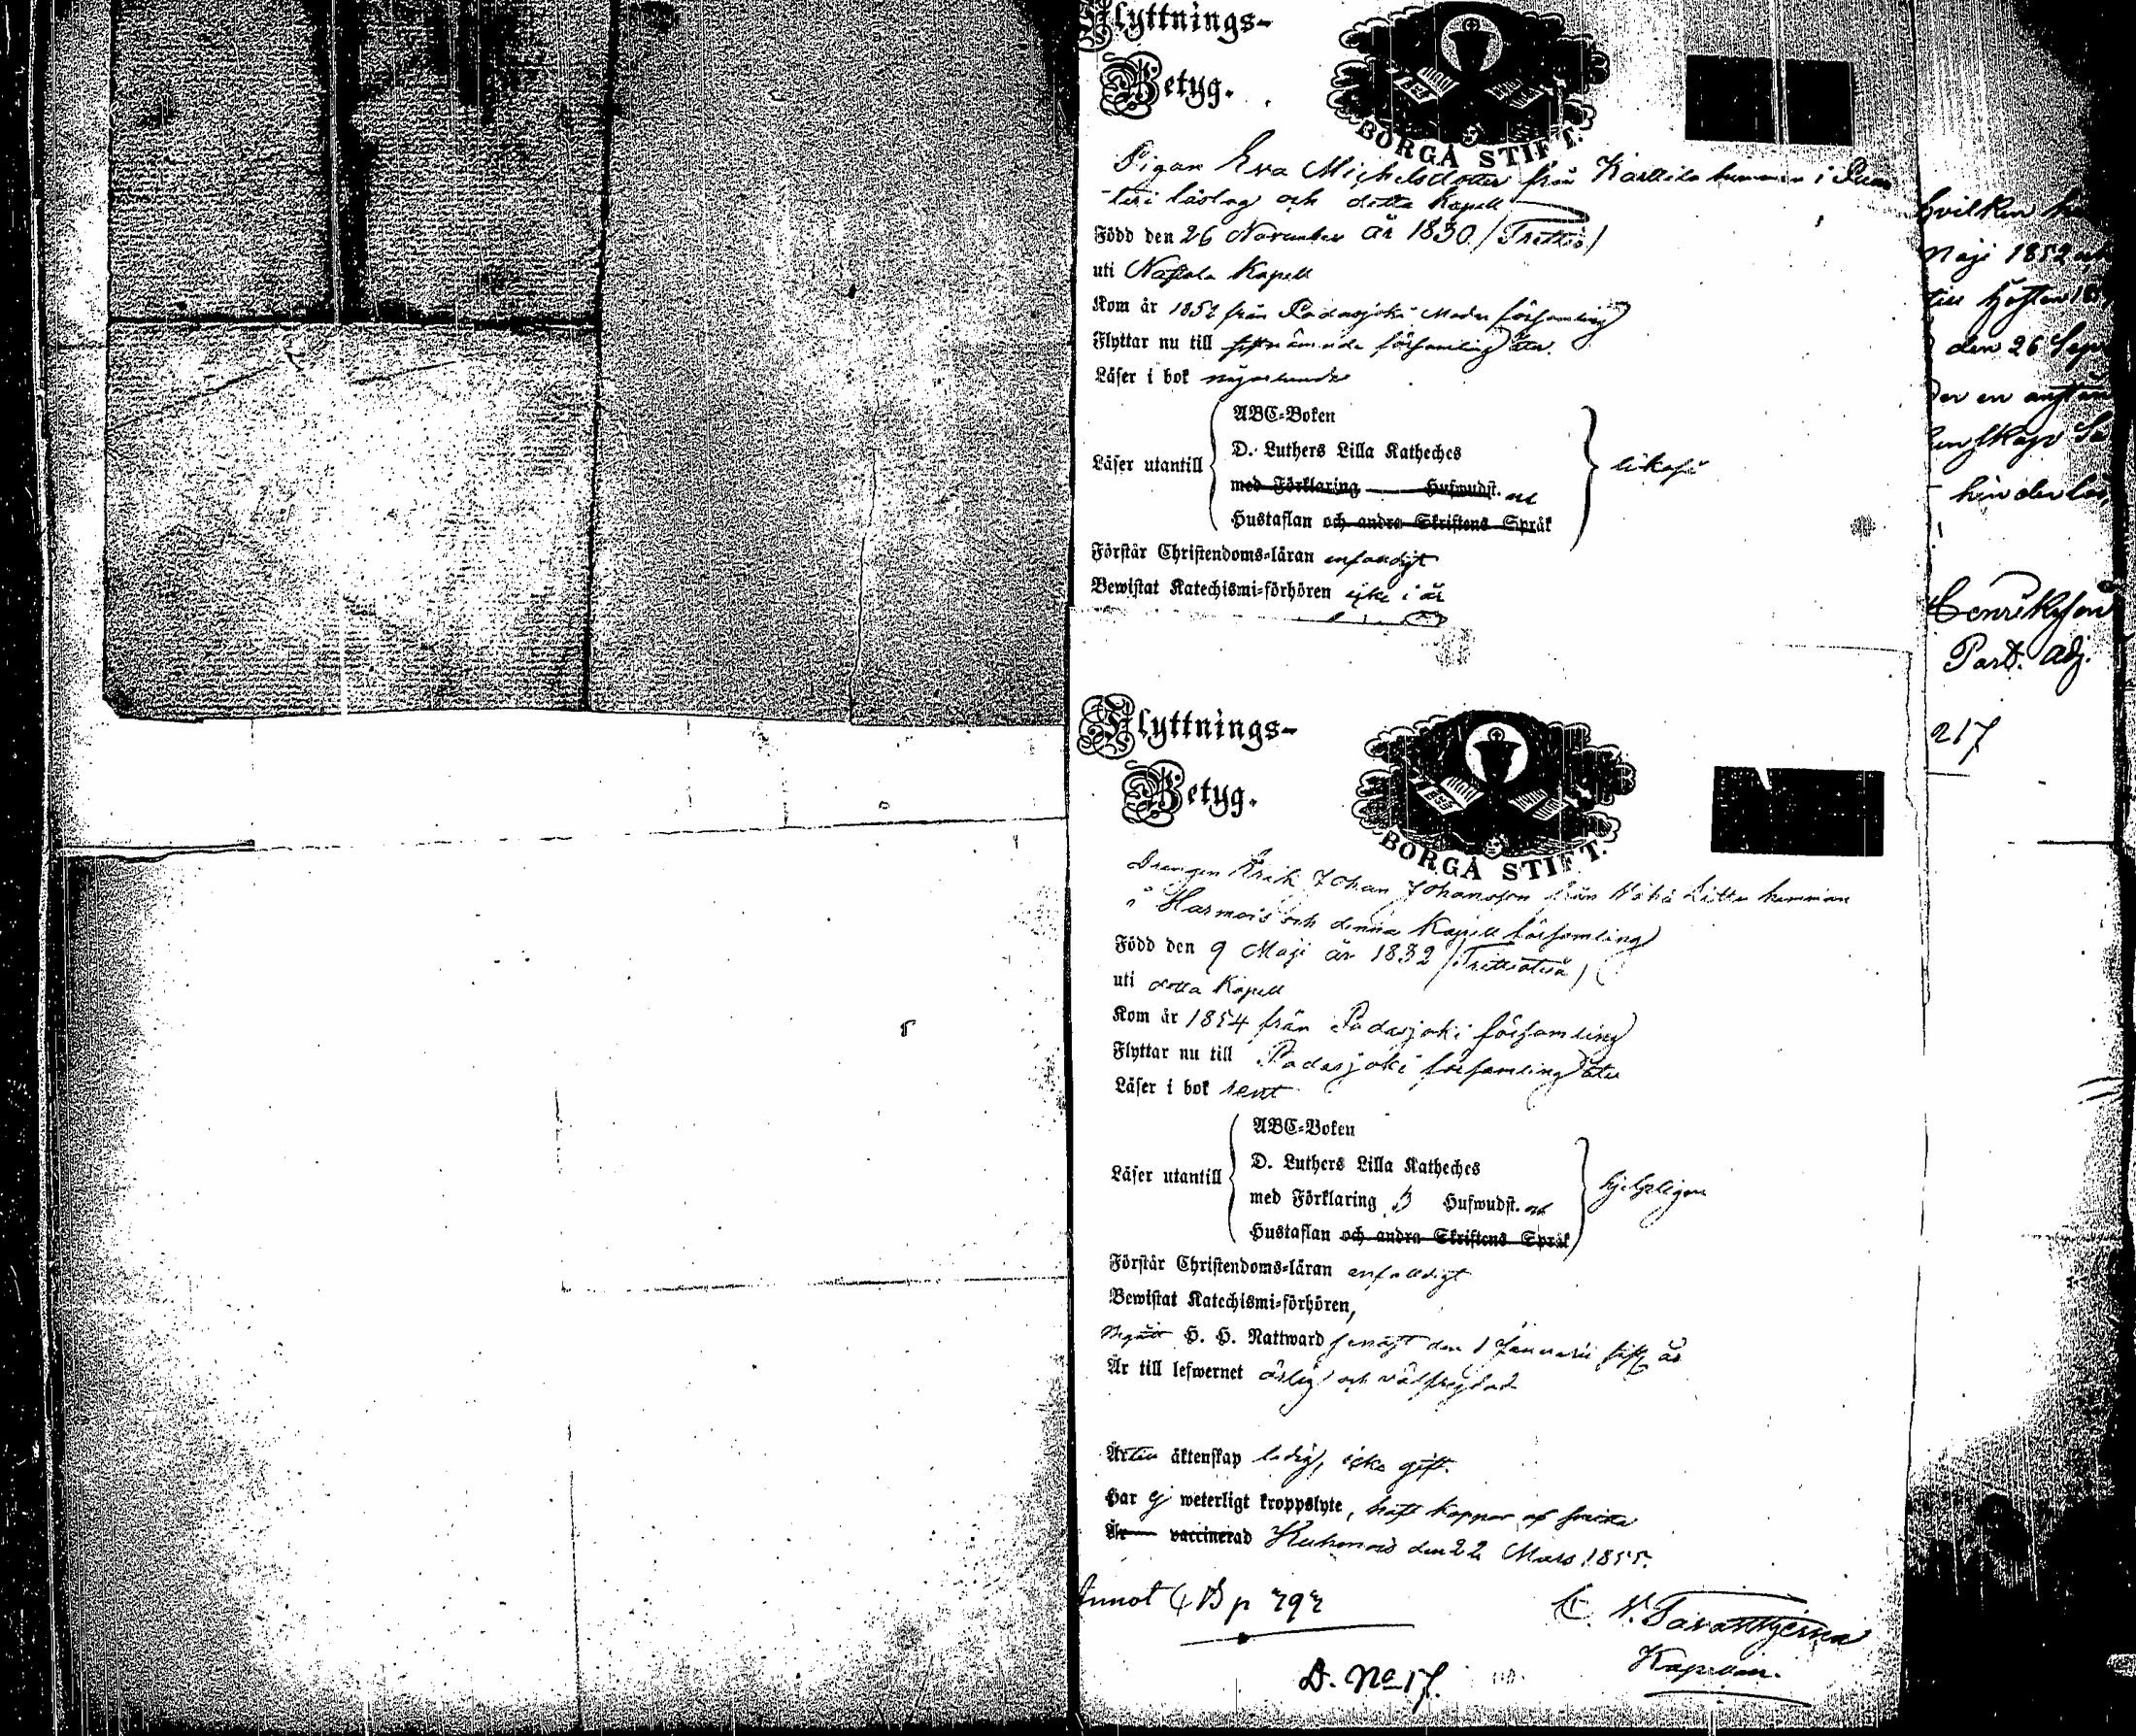 Flyttnings-
Betyg.
BORGÅ STIFT.
Pigan Eva Michelsdotter från Karttila hemman i Pum
-teri läslag och detta Kapell
Född den 26 November år 1830. (Trettio)
uti Nastola Kapell
Kom år 1852 från Padasjoki Moder församling
Flyttar nu till församling åter.
Läser i bok någorlunda
ABC-Boken
D. Luthers Lilla Katheches
Läser utantill
med Förklaring Hufwudst. och
Hustaflan och andra Skriftens Språk
likaså
Förstår Christendoms-läran enfaldigt
Bewistat Katechismi-förhören icke i år
Flyttnings-
Betyg.
BORGÅ STIFT.
Drengen Erik Johan Johansson från hemman
i Harmois och denna Kapell församling
Född den 9 Maji år 1832 (Trettiotvå)
uti detta Kapell
Kom år 1854 från Padasjoki församling
Flyttar nu till Padasjoki församling åter
Läser i bok rent
ABC-Boken
D. Luthers Lilla Katheches
Läser utantill
med Förklaring 3 Hufwudst. och
Hustaflan och andra Skriftens Språk
hjelpligen
Förstår Christendoms-läran enfaldigt
Bewistat Katechismi-förhören,
Begått H. H. Nattward senast den 1 Januarii år
Är till lefwernet ärlig och välfregdad
Är till äktenskap ledig, icke gift.
Har ej weterligt kroppslyte, haft koppor af
Är vaccinerad Kuhmois den 22 Mars 1855.
Annot C B p 792
C. N. Tavaststjerna
Kapellan.
D. No 17.
hvilken
Maji 1852
till Hösten
den 26 Sep
der en
hinderlös
Henriksson
Past. Adj.
217